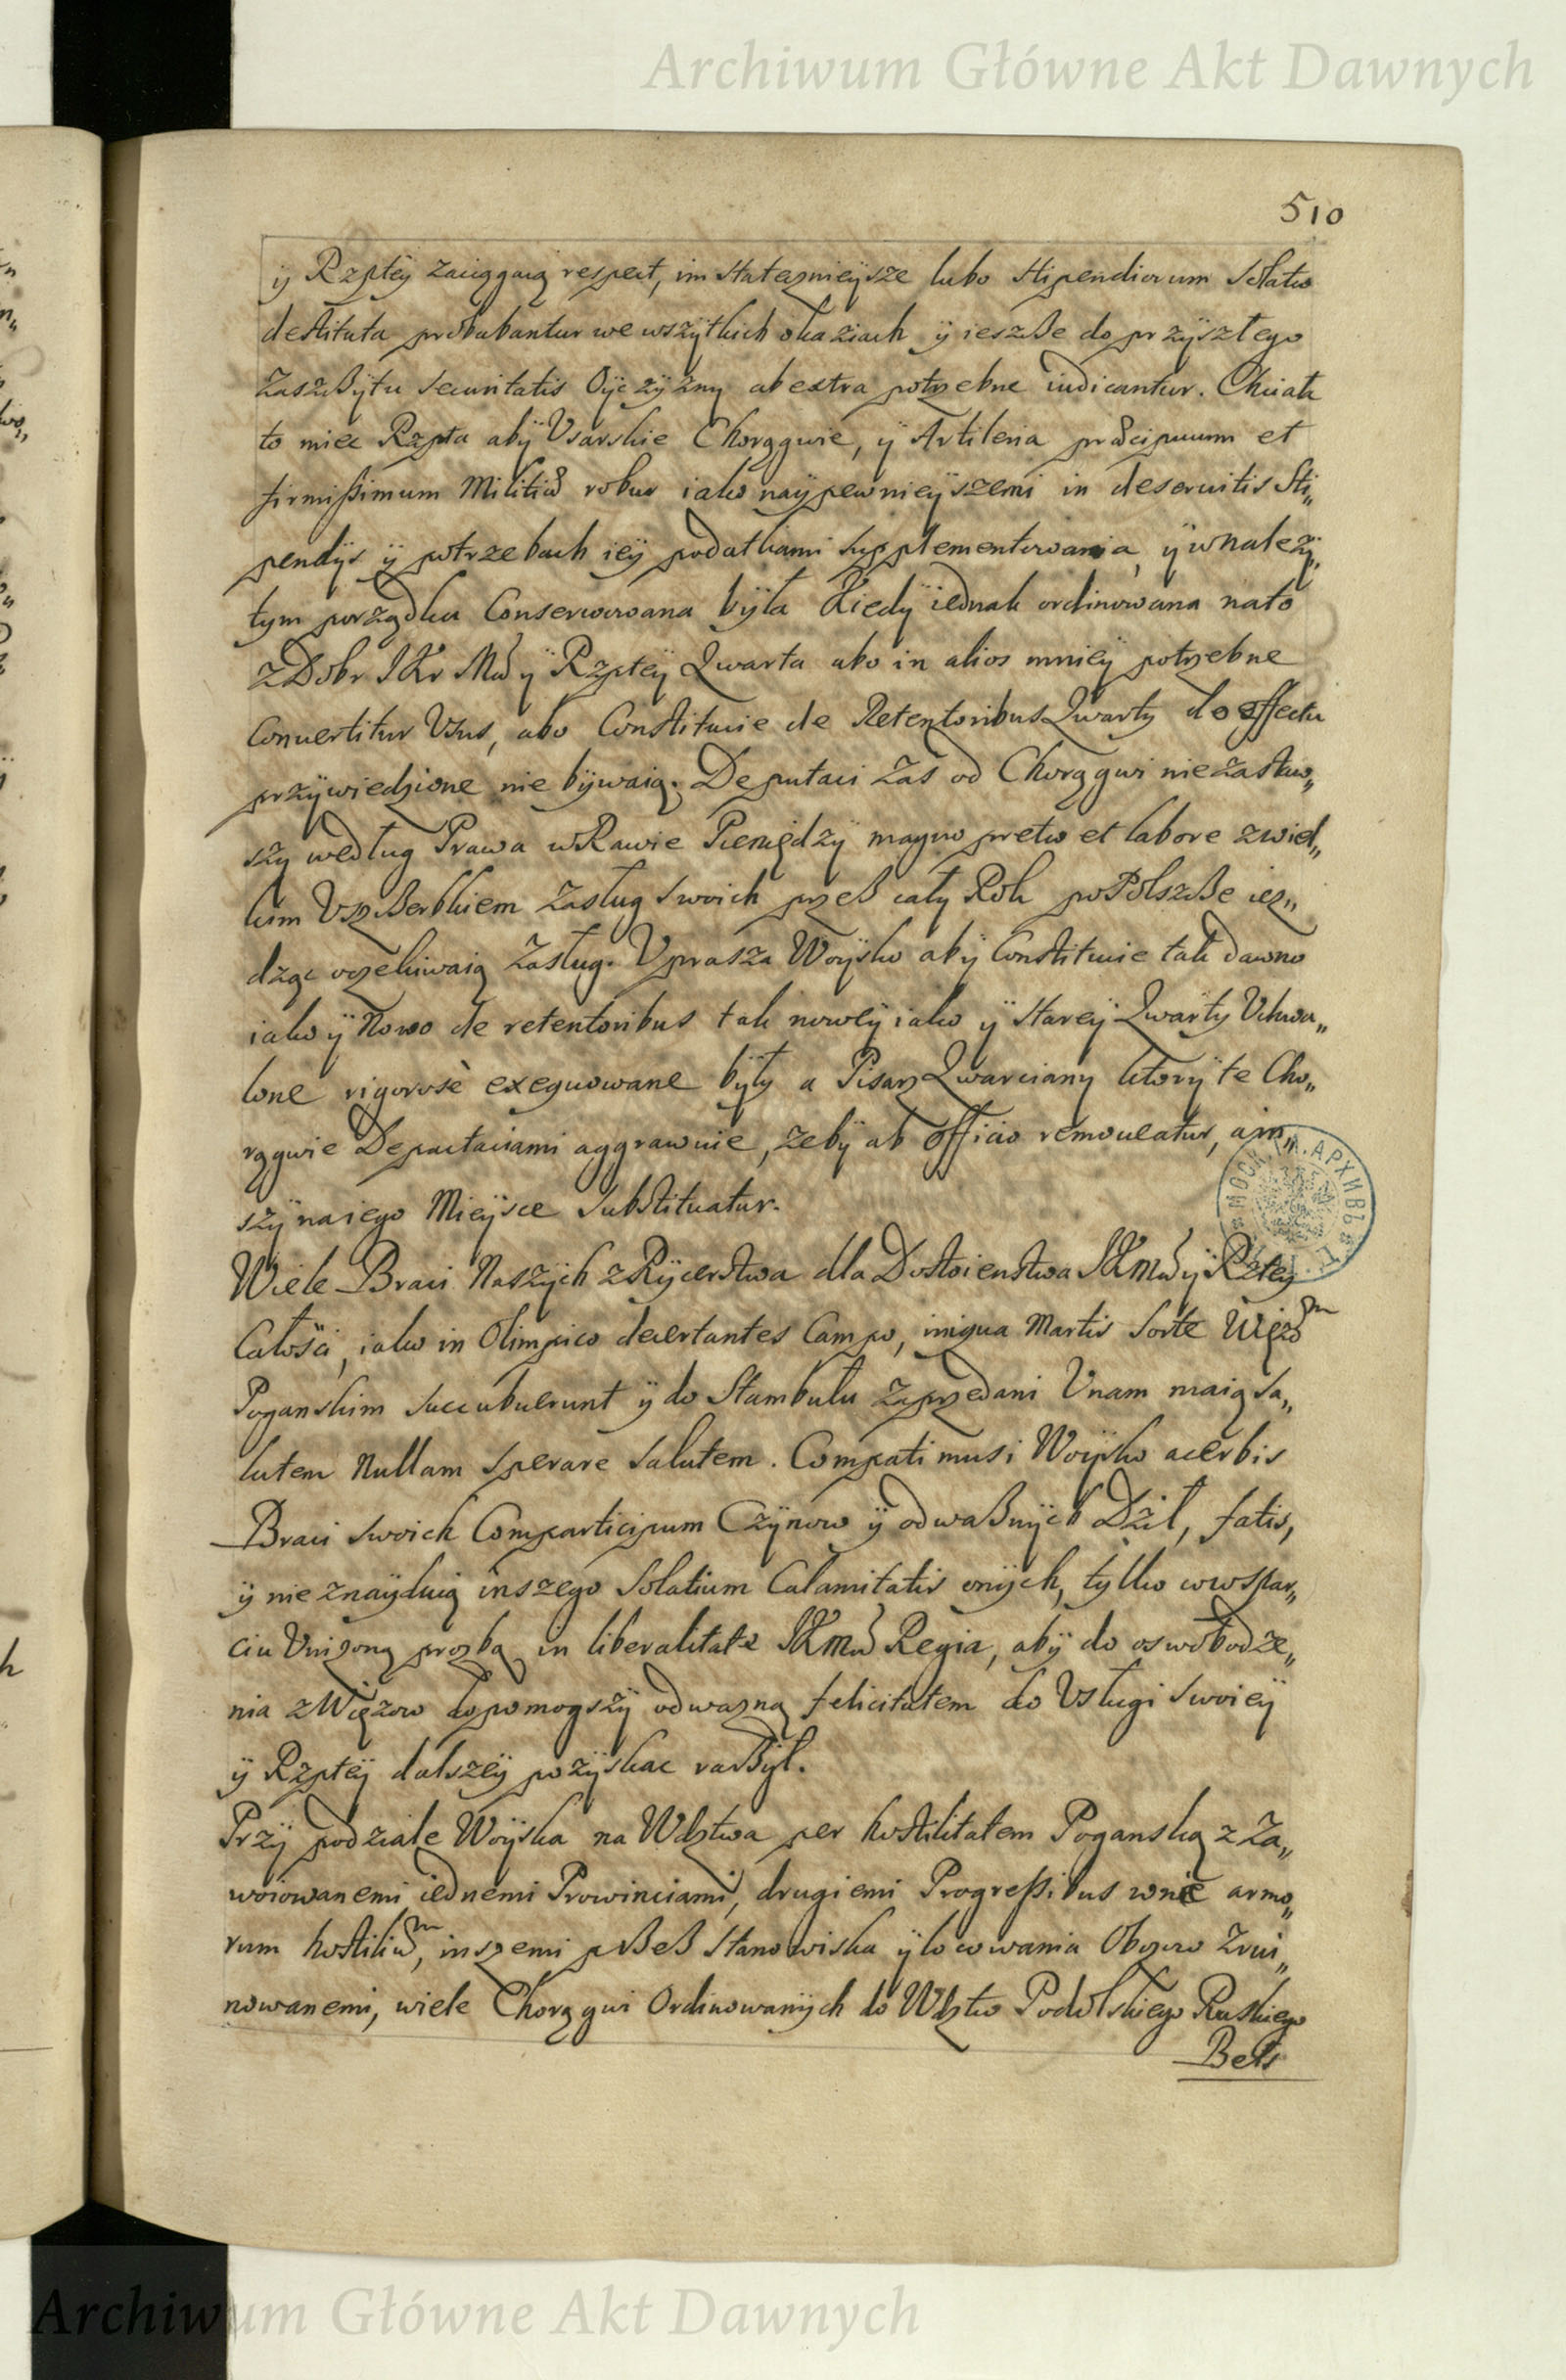 Archiwum Główne Akt Dawnych
510
ÿ Rzptеÿ zaciągaią respect, im statecznieÿsze lubo stipendiorum solatio
destituta probabantur we wszÿtkich okaziach ÿ ieszcze do przÿszłego
zaszczÿtu securitatis Oÿczÿzny ab extra potrzebne iudicantur. Chciała
to miec Rzpta abÿ Vsarskie Chorągwie, ÿ Artileria præcipuum et
firmißimum Militiæ robur iako naÿpewnieÿszemi in deseruitis Sti„
pendÿs ÿ potrzebach ieÿ podatkami supplementowania, ÿ w należÿ„
tym porządku Conserwowana bÿła Kiedÿ iednak ordinowana na to
z Dobr JKr Mći ÿ Rzpteÿ Qwarta abo in alios mnieÿ potrzebne
Conuertitur Vsus, abo Constitucie de Retentoribus Qwarty do effectu
przÿwiedzione nie bÿwaią. Deputaci zas od Chorągwi nie zastaw„
szy według Prawa w Rawie Pieniędzÿ magno pretio et labore z wiel„
kim Vszczerbkiem zasług swoich przeß cały Rok po Polszcze iez„
dząc oczekiwaią zasług. Vprasza Woÿsko abÿ Constitucie tak dawno
iako ÿ Nowo de retentoribus tak noweÿ iako ÿ stareÿ Qwarty Vchwa„
lone rigorosè exequowane bÿły a Pisarz Qwarciany ktorÿ te Cho„
rągwie Deputaciami aggrawuie, żebÿ ab officio remoueatur, a in„
szÿ na iego Mieÿsce substituatur.
Wiele Braci Naszÿch z Rÿcerstwa dla Dostoienstwa JKMći ÿ Rptеÿ
Całości, iako in Olimpico decertantes Campo, iniqua Martis Sorte Więzom
Poganskim succubuerunt ÿ do Stambułu zaprzedani Vnam maią sa„
lutem Nullam sperare salutem. Compati musi Woÿsko acerbis
Braci swoich Comparticipum Czÿnow ÿ odważnÿch Dził, fatis,
ÿ nie znaÿduią inszego Solatium Calamitatis onÿch, tylko w wspar„
ciu Vnizoną prozbą in liberalitate JKMći Regia, abÿ do oswobodze„
nia z Więzow dopomogszÿ odwazną felicitatem do Vsługi swoieÿ
ÿ Rzpteÿ dalszeÿ pozÿskac raczÿł.
Przÿ podziale Woÿska na Wdztwa per hostilitatem Poganską z Za„
woiowanemi iednemi Prowinciami, drugiemi Progreßibus armo„
rum hostilium, inszemi przeß Stanowiska ÿ locowania Obozow Zrui„
nowanemi, wiele Chorągwi Ordinowanÿch do Wdztw Podolskiego Ruskiego
Bełs
Archiwum Główne Akt Dawnych